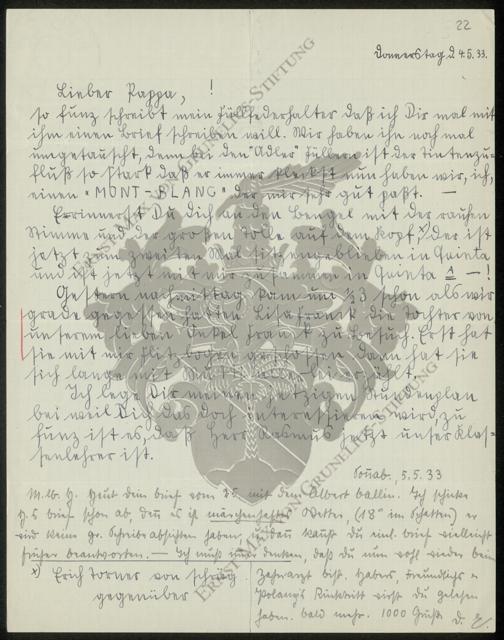 22
Donnerstag d 4.5.33.
Lieber Pappa, !
so schreibt mein Füllfederhalter daß ich Dir mal mit
ihm einen Brief schreiben will. Wir haben ihn noch mal
umgetauscht, denn bei den "Adler" Füllern ist der Tintenzu-
fluß so stark daß er immer kleckst nun haben wir, ich,
einen "MONT-BLANC" der mir sehr gut paßt. —
Erinnerst Du Dich an den Bengel mit der rauhen
Stimme und der großen Tolle auf dem Kopf, x) der ist
jetzt zum zweiten Mal sitzengeblieben in Quinta
und ist jetzt mit mir zusammen in Quinta 1 — !
Gestern nachmittag kam um ½3 schon als wir
grade gegessen hatten Lisa Frank die Tochter von
unserem lieben Onkel Frank zu Besuch. Erst hat
sie mit mir flitzbogen geschossen, dann hat sie
sich lange mit Mutti unterhalten.
Ich lege Dir meinen jetzigen Stundenplan
bei weil Dich das doch interessieren wird, zu
ist es, daß Herr jetzt unser Klas-
senlehrer ist.
Sonnab. 5.5.33
M. lb. H. Heut dein brief vom mit dem Albert ballin. Ich schicke
H.s brief schon ab, denn es ist märchenhaftes Wetter, (18° im Schatten) er
wird keine gr. Schreibabsichten haben, sodaß kannst Du einl. brief vielleicht
früher beantworten. — Ich muß dran denken, daß du nun wohl wieder beim
x) Erich Torner von schräg
gegenüber
Zahnarzt bist. Habers, Freundlichs u.
Polanyis Rücktritt wirst du gelesen
haben. bald mehr. 1000 Grüße D. E.
ERNST MAX VON GRUNELIUS-STIFTUNG
ERNST MAX VON GRUNELIUS-STIFTUNG